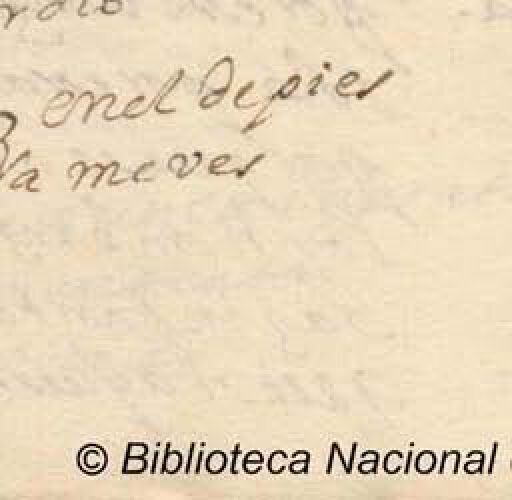 enel de pies
a me ves
© Biblioteca Nacional